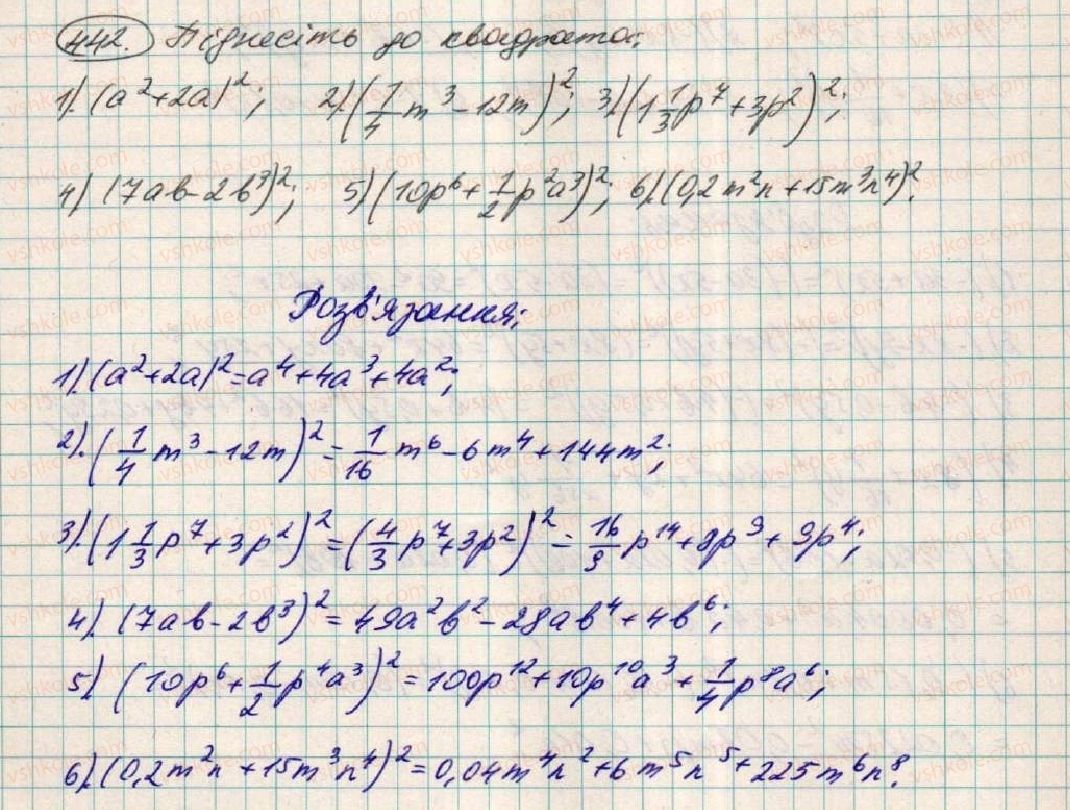 442. Піднесіть до квадрата:
1). (a²+2a)²; 2).(1/4 m³-12m)²; 3).(1 1/3 p⁷+3p²)²;
4) (7ab-2b³)²; 5) (10p⁶+1/2 p²a³)²; 6).(0,2m²n+15m³n⁴)².
Розв'язання:
1).(a²+2a)²=a⁴+4a³+4a²;
2).(1/4 m³-12m)²=1/16 m⁶-6m⁴+144m²;
3).(1 1/3 p⁷+3p²)²=(4/3 p⁷+3p²)²=16/9 p¹⁴+8p⁹+9p⁴;
4). (7ab-2b³)²=49a²b²-28ab⁴+4b⁶;
5) (10p⁶+1/2 p⁴a³)²=100p¹²+10p¹⁰a³+1/4 p⁸a⁶;
6).(0,2m²n+15m³n⁴)²=0,04m⁴n²+6m⁵n⁵+225m⁶n⁸.